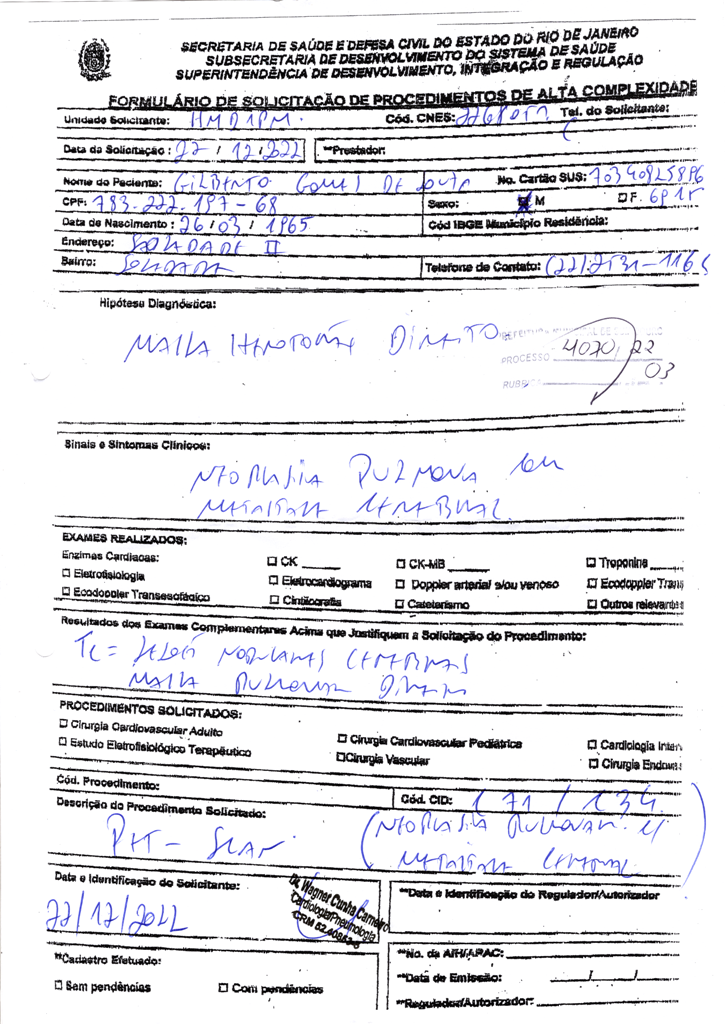 SECRETARIA DE SAÚDE E DEFESA CIVIL DO ESTADO DO RIO DE JANEIRO
SUBSECRETARIA DE DESENVOLVIMENTO DO SISTEMA DE SAÚDE
SUPERINTENDÊNCIA DE DESENVOLVIMENTO, INTEGRAÇÃO E REGULAÇÃO
FORMULÁRIO DE SOLICITAÇÃO DE PROCEDIMENTOS DE ALTA COMPLEXIDADE
Unidade Solicitante: Cód. CNES: Tel. do Solicitante:
Data da Solicitação: 22/12/2022 **Prestador:
Nome do Paciente: GILBERTO GOMES DE No. Cartão SUS: 70340825886
CPF: 783.222.197-68 Sexo: M F. 6915
Data de Nascimento: 26/03/1965 Cód IBGE Município Residência:
Endereço: SOLEDADE II
Bairro: SOLEDADE Telefone de Contato: (22)
Hipótese Diagnóstica:
MASSA DIREITO
PROCESSO 4070/22
RUBRICA 03
Sinais e Sintomas Clínicos:
NEOPLASIA PULMONAR COM
METASTASE CEREBRAL
EXAMES REALIZADOS:
Enzimas Cardíacas: CK ____ CK-MB ____ Troponina ____
Eletrofisiologia Eletrocardiograma Doppler arterial e/ou venoso Ecodoppler Trans
Ecodoppler Transesofágico Cintilografia Cateterismo Outros relevantes
Resultados dos Exames Complementares Acima que Justifiquem a Solicitação do Procedimento:
TC = LESÕES NODULARES CEREBRAIS
MASSA PULMONAR DIREITA
PROCEDIMENTOS SOLICITADOS:
Cirurgia Cardiovascular Adulto Cirurgia Cardiovascular Pediátrica Cardiologia Interv
Estudo Eletrofisiológico Terapêutico Cirurgia Vascular Cirurgia Endova
Cód. Procedimento: Cód. CID: C71 / C34
Descrição do Procedimento Solicitado:
PET-SCAN (NEOPLASIA PULMONAR C/
METASTASE CEREBRAL)
Data e Identificação do Solicitante: **Data e Identificação do Regulador/Autorizador
22/12/2022
Dr. Wagner Cunha Carneiro
Cardiologia/Pneumologia
**Cadastro Efetuado: **No. da AIH/APAC:
**Data de Emissão: / /
Sem pendências Com pendências **Regulador/Autorizador: